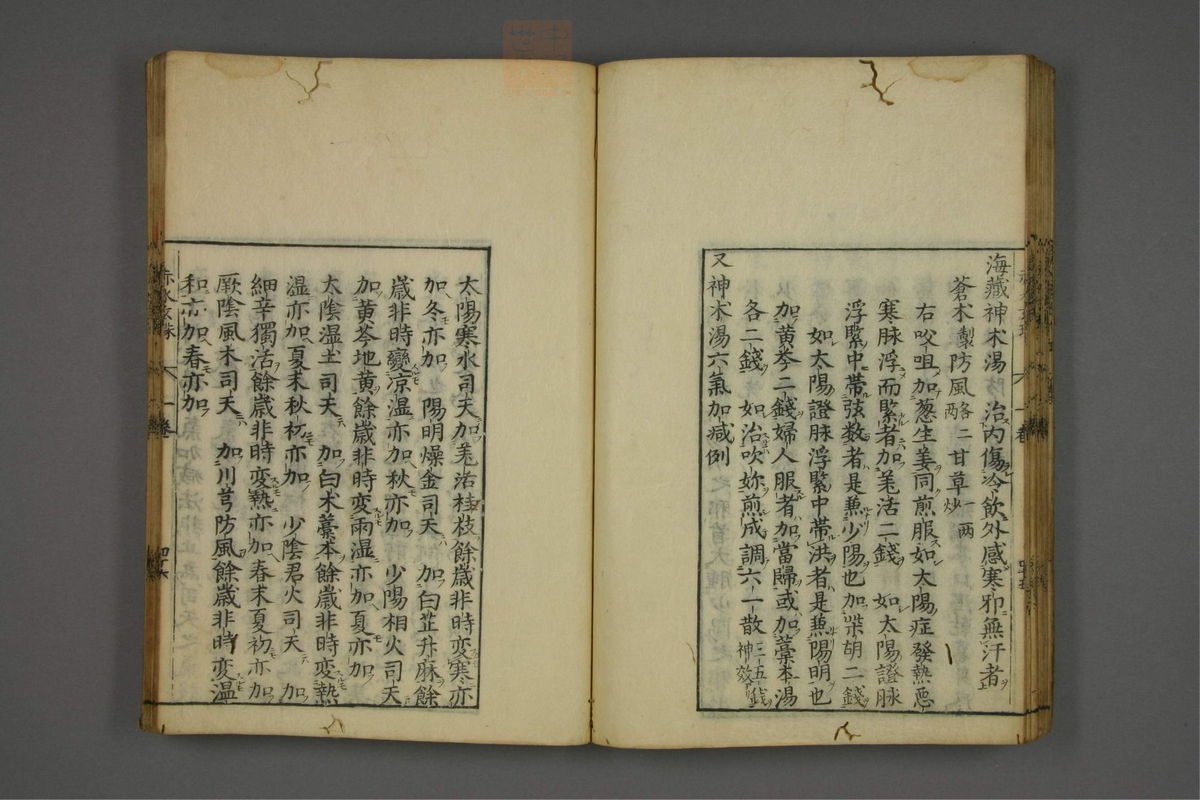 海藏神术湯治内傷冷飲外感寒邪無汗者
蒼术製防風各二两甘草一两炒
右㕮咀加葱生姜同煎服如太陽症發熱惡
寒脉浮而緊者加羌活二錢如太陽證脉
浮緊中帯弦数者是兼少陽也加柴胡二錢
如太陽證脉浮緊中帯洪者是兼陽明也
加黄芩二錢婦人服者加當歸或加藁本湯
各二錢如治吹妳煎成調六一散三五錢神效
又神术湯六氣加减例
太陽寒水司天加羌活桂枝餘歳非時変寒亦
加冬亦加陽明燥金司天加白芷升麻餘
歳非時變凉湿亦加秋亦加少陽相火司天
加黄芩地黄餘歳非時変雨湿亦加夏亦加
太陰湿土司天加白术藁本餘歳非時変熱
湿亦加夏末秋初亦加少陰君火司天加
細辛獨活餘歳非時変熱亦加春末夏初亦加
厥陰風木司天加川芎防風餘歳非時変温
和亦加春亦加
赤水玄珠
一卷